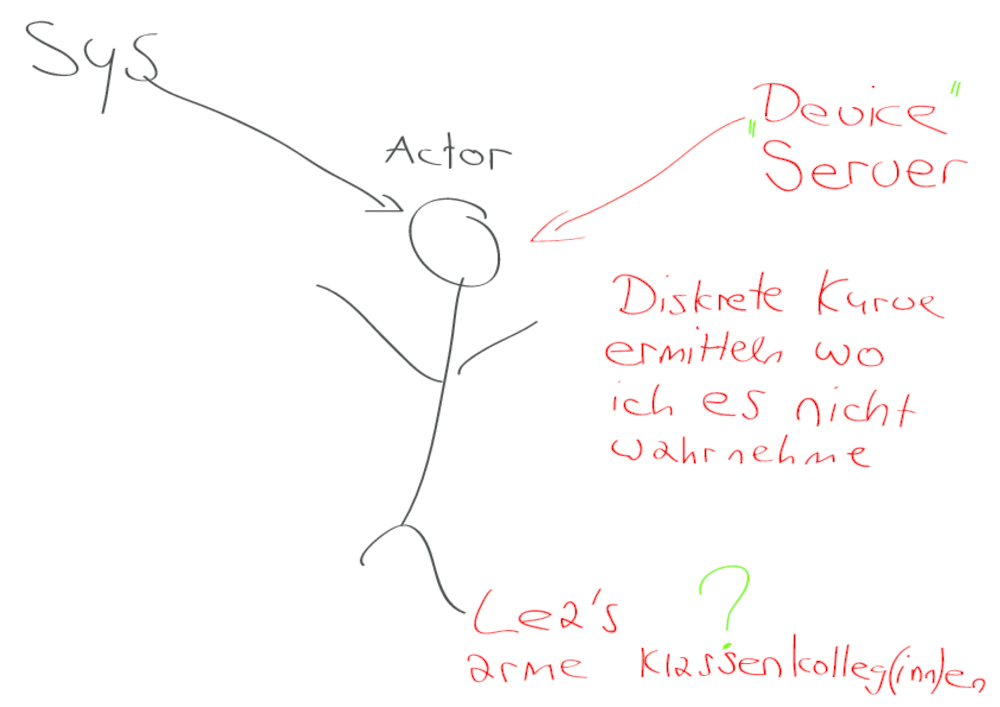 Sys
Actor
"Device"
Server
Diskrete Kurve
ermitteln wo
ich es nicht
wahrnehme
Lea's ?
arme Klassenkolleg(inn)en